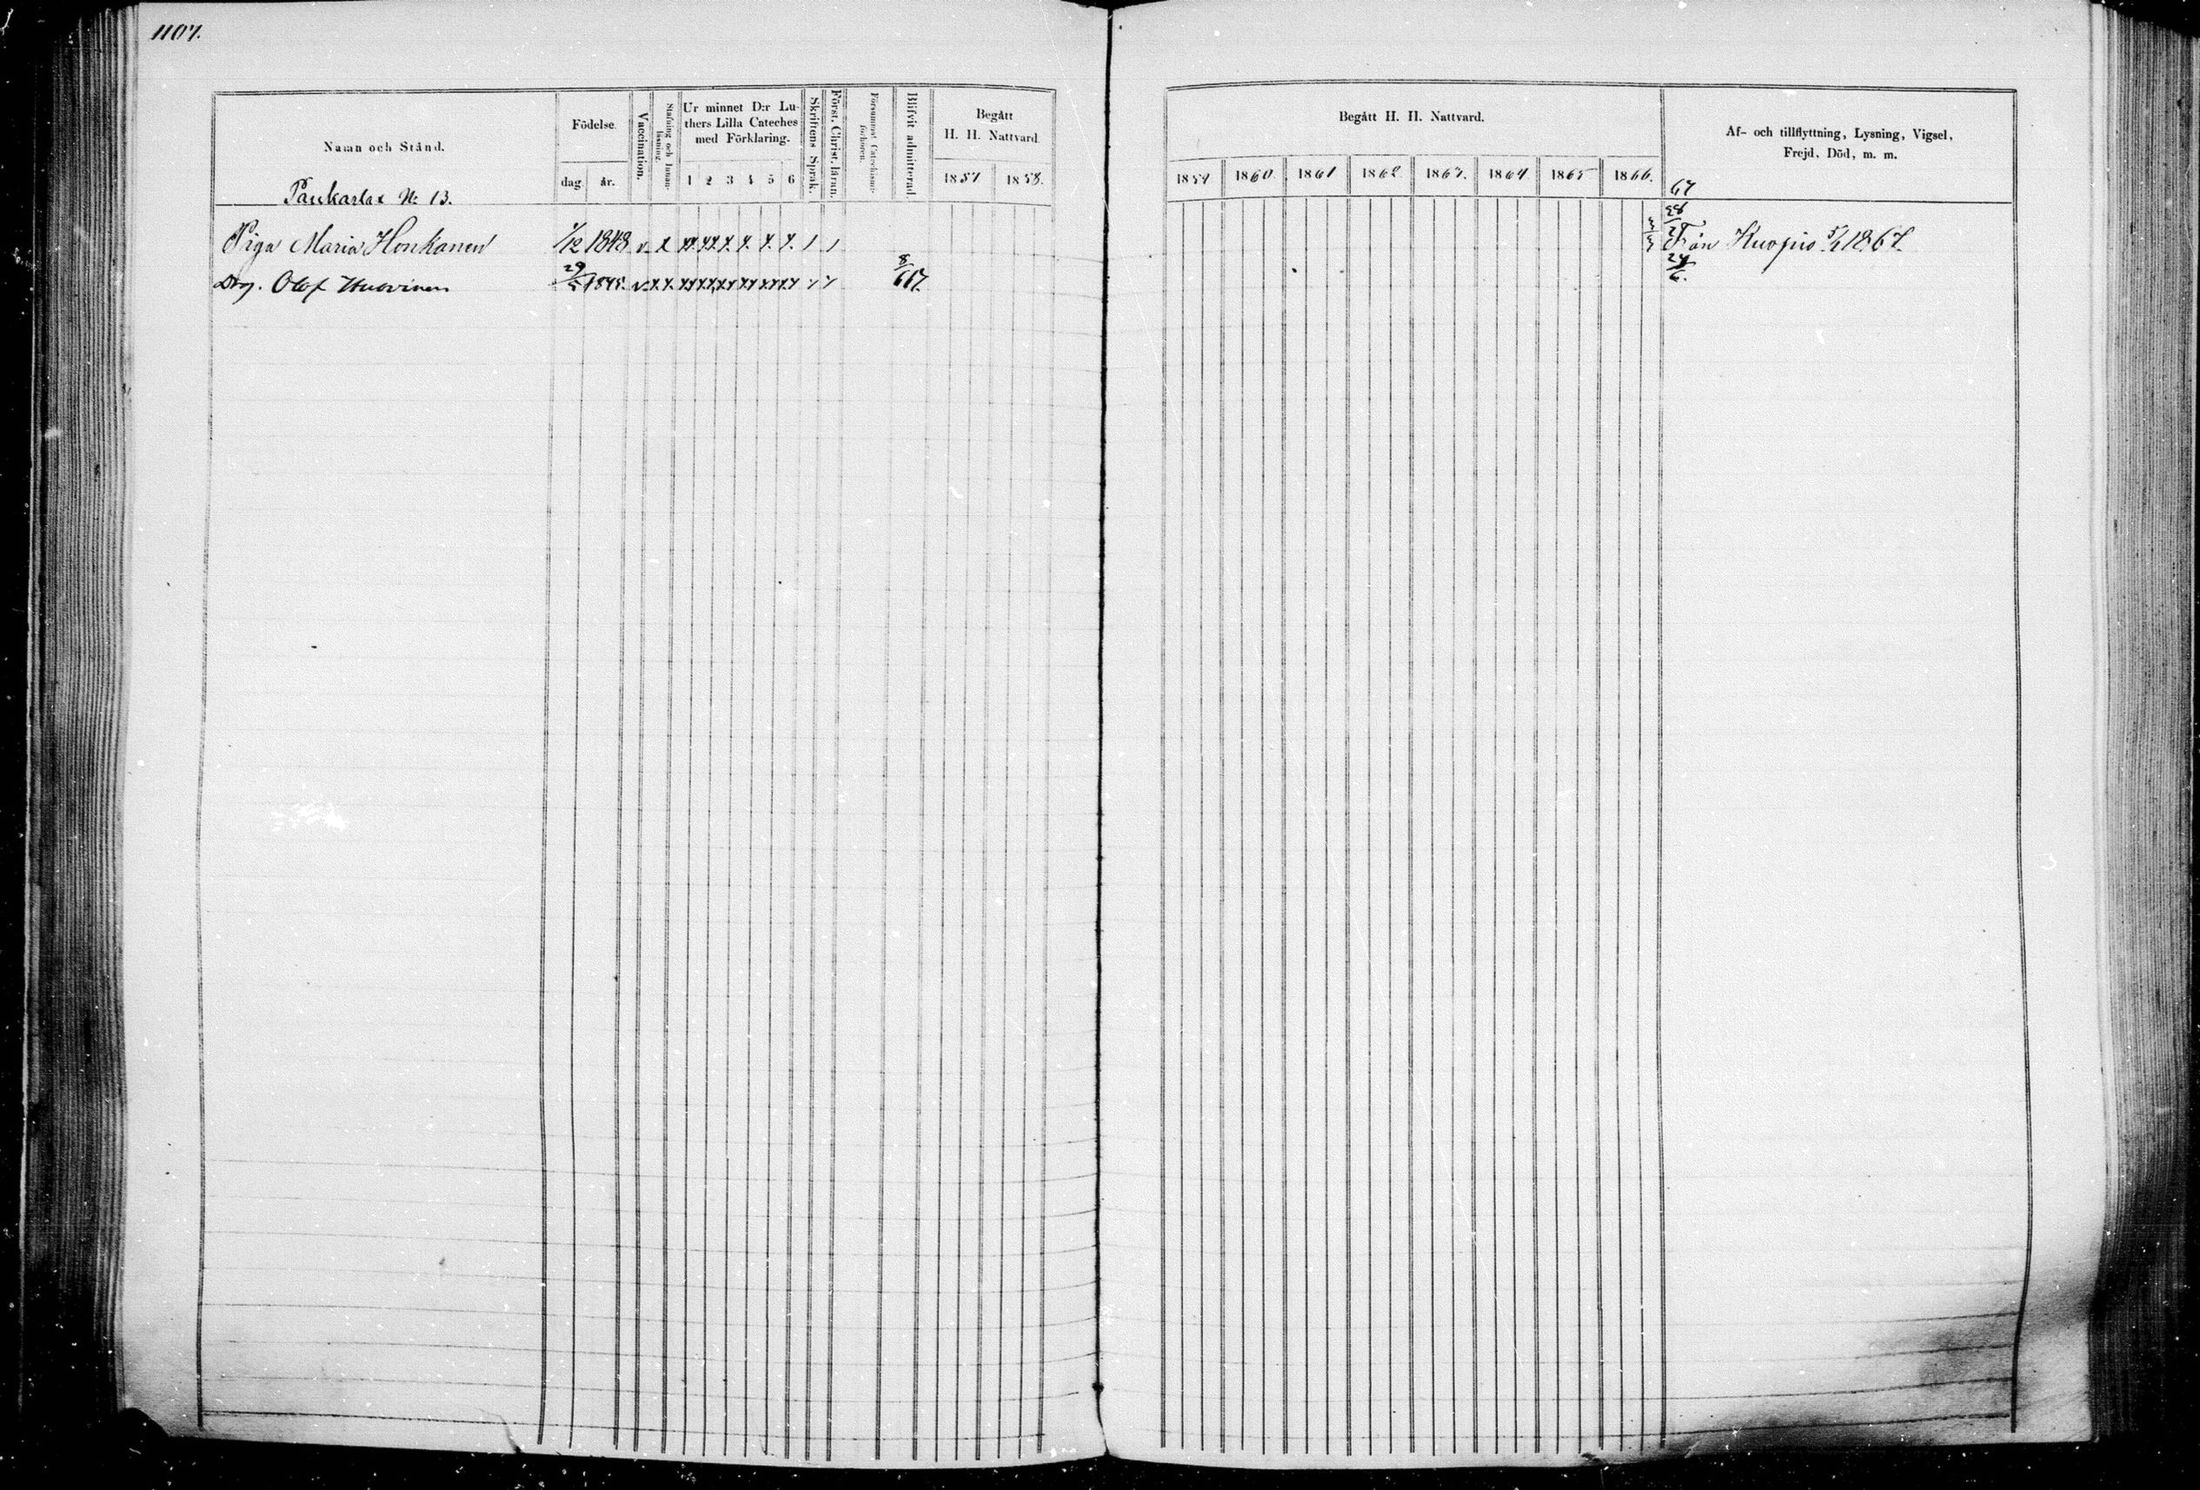 1107.
Namn och Stånd.
Födelse.
dag
år.
Vaccination.
Stafning och Innan-
läsning.
Ur minnet D:r Lu-
thers Lilla Cateches
med Förklaring.
1 2 3 4 5 6
Skriftens Språk.
Först. Christ. läran.
Försummat Catechismi-
förhören.
Blifvit admitterad.
Begått
H. H. Nattvard.
1857 1858.
Begått H. H. Nattvard.
1859 1860. 1861 1862 1863. 1864 1865 1866.
Af- och tillflyttning, Lysning, Vigsel,
Frejd, Död, m. m.
67
Paukarlax N: 13.
Piga Maria Honkanen 1/12 1848 v. x xx. xx. x. x. x. x. / / Från Kuopio 5/1 1867.
Drg. Olof Huovinen 29/5 1848. v. x x. xx xx xx xx xx xx 8/6 67. 24/6.